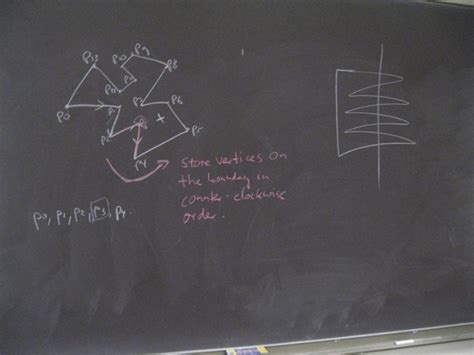 p9
p10
p12
p8
p11
p0
p1
p7
p6
p2
p3
p5
p4
store vertices on
the boundary in
counter-clockwise
order.
p0, p1, p2, p3, p4